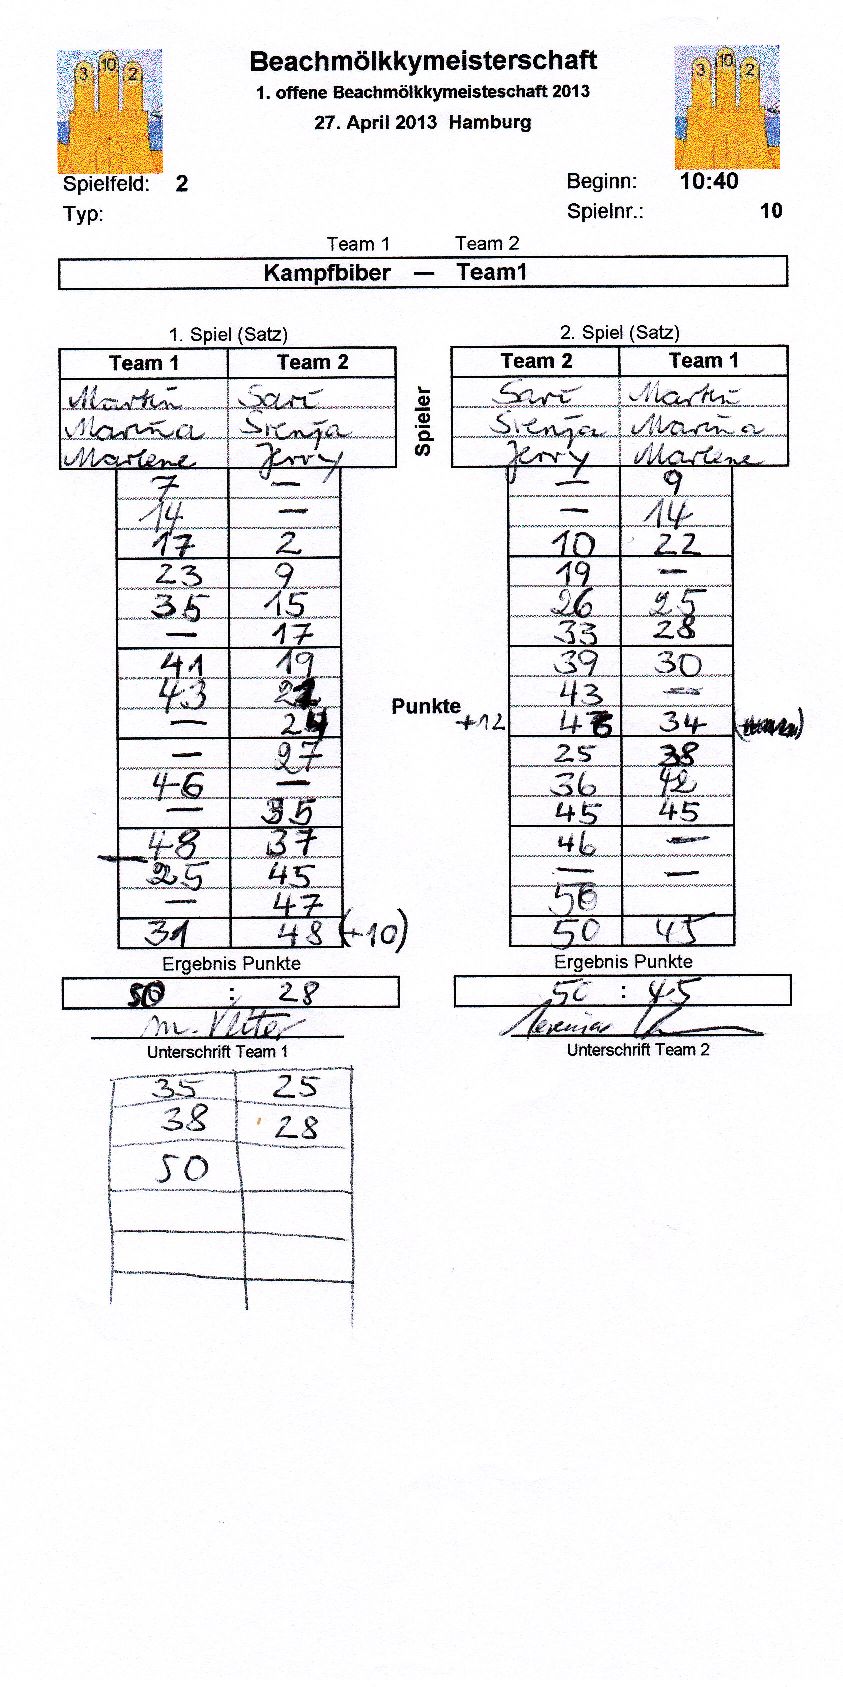 3 10 2
3 10 2
Beachmölkkymeisterschaft
1. offene Beachmölkkymeisteschaft 2013
27. April 2013 Hamburg
Spielfeld: 2 Beginn: 10:40
Typ: Spielnr.: 10
Team 1 Team 2
Kampfbiber — Team1
1. Spiel (Satz)
Team 1 Team 2
Martin Sari
Marina Sienja
Marlene Jerry
7 —
14 —
17 2
23 9
35 15
— 17
41 19
43 22
— 24
— 27
46 —
— 35
48 37
25 45
— 47
31 48 (+10)
Ergebnis Punkte
50 : 28
Unterschrift Team 1
35 25
38 28
50
Spieler
Punkte
2. Spiel (Satz)
Team 2 Team 1
Sari Martin
Sienja Marina
Jerry Marlene
— 9
— 14
10 22
19 —
26 25
33 28
39 30
43 —
+12 34
25 38
36 42
45 45
46 —
— —
50
50 45
Ergebnis Punkte
50 : 45
Unterschrift Team 2